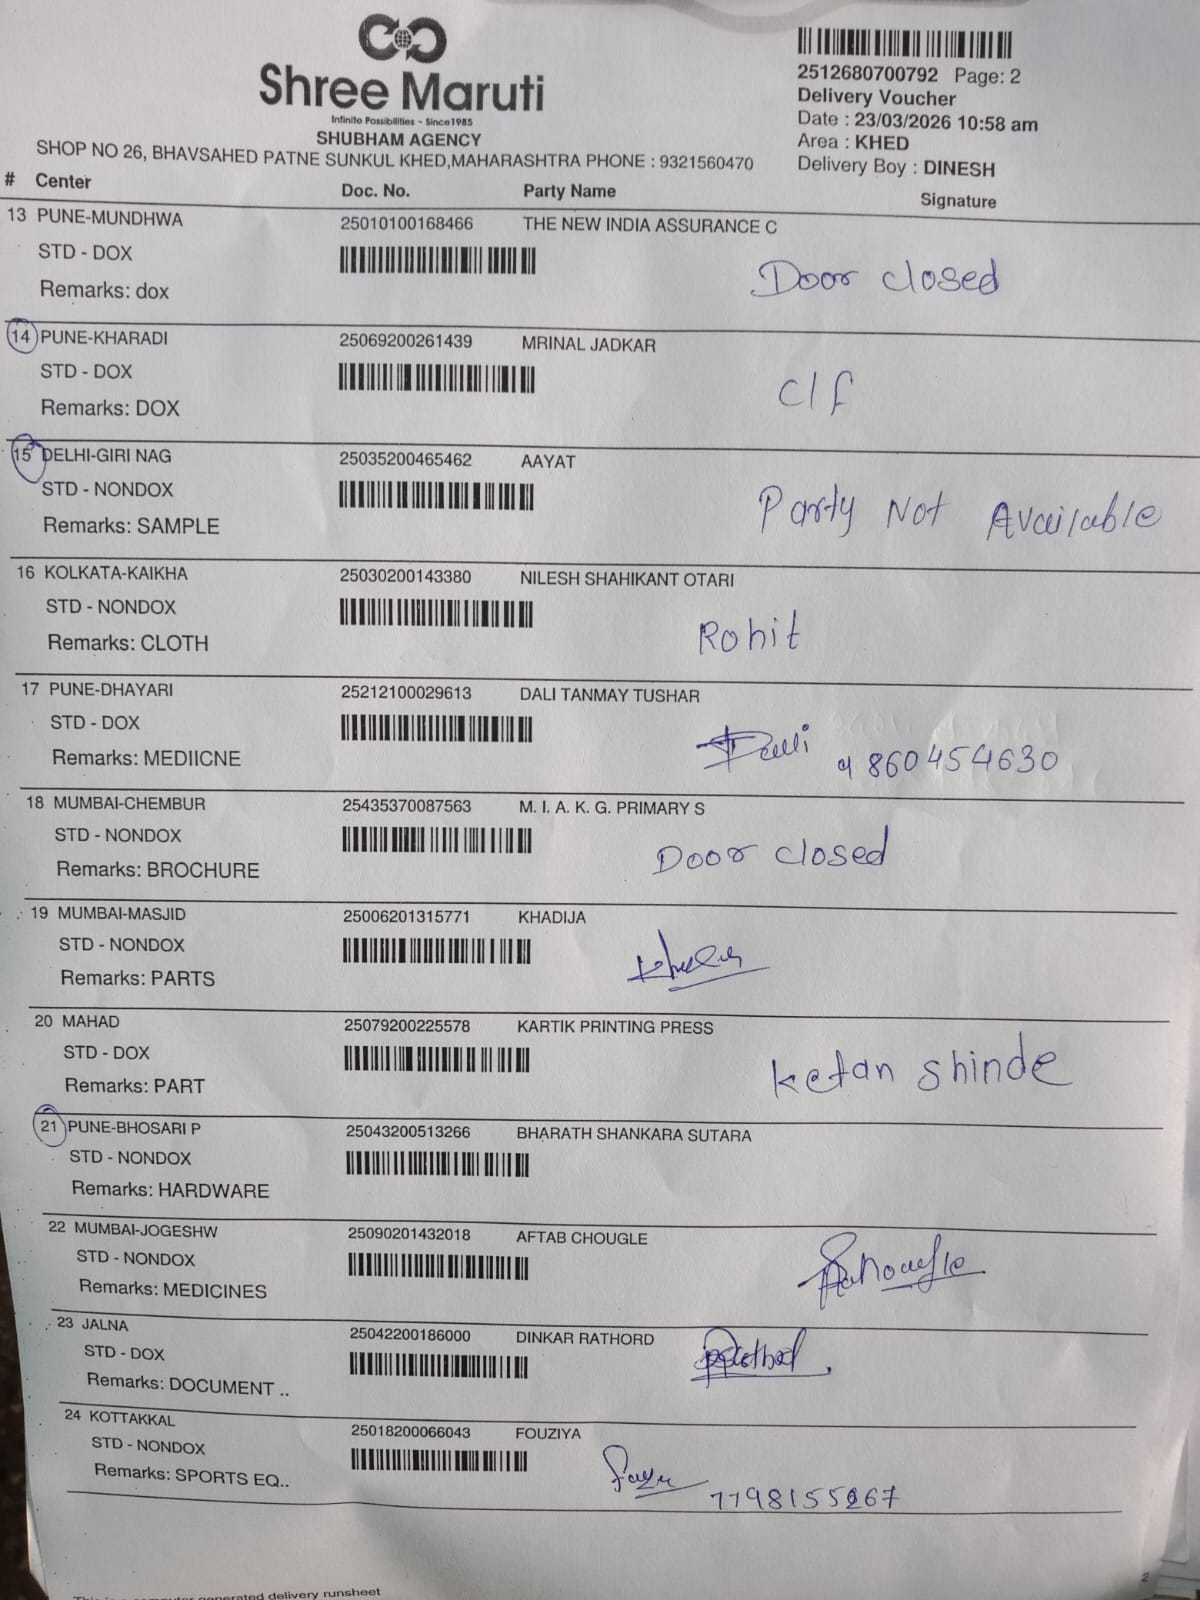 Shree Maruti
Infinite Possibilities - Since 1985
SHUBHAM AGENCY
SHOP NO 26, BHAVSAHED PATNE SUNKUL KHED,MAHARASHTRA PHONE : 9321560470
2512680700792 Page: 2
Delivery Voucher
Date : 23/03/2026 10:58 am
Area : KHED
Delivery Boy : DINESH
# Center Doc. No. Party Name Signature
13 PUNE-MUNDHWA 25010100168466 THE NEW INDIA ASSURANCE C
STD - DOX
Door closed
Remarks: dox
14 PUNE-KHARADI 25069200261439 MRINAL JADKAR
STD - DOX
C/f
Remarks: DOX
15 DELHI-GIRI NAG 25035200465462 AAYAT
STD - NONDOX
Party Not Available
Remarks: SAMPLE
16 KOLKATA-KAIKHA 25030200143380 NILESH SHAHIKANT OTARI
STD - NONDOX
Rohit
Remarks: CLOTH
17 PUNE-DHAYARI 25212100029613 DALI TANMAY TUSHAR
STD - DOX
Remarks: MEDIICNE
Dali 9860454630
18 MUMBAI-CHEMBUR 25435370087563 M. I. A. K. G. PRIMARY S
STD - NONDOX
Door closed
Remarks: BROCHURE
19 MUMBAI-MASJID 25006201315771 KHADIJA
STD - NONDOX
Remarks: PARTS
20 MAHAD 25079200225578 KARTIK PRINTING PRESS
STD - DOX
Ketan Shinde
Remarks: PART
21 PUNE-BHOSARI P 25043200513266 BHARATH SHANKARA SUTARA
STD - NONDOX
Remarks: HARDWARE
22 MUMBAI-JOGESHW 25090201432018 AFTAB CHOUGLE
STD - NONDOX
Remarks: MEDICINES
23 JALNA 25042200186000 DINKAR RATHORD
STD - DOX
Remarks: DOCUMENT ..
24 KOTTAKKAL 25018200066043 FOUZIYA
STD - NONDOX
Remarks: SPORTS EQ..
7798155267
computer generated delivery runsheet
2